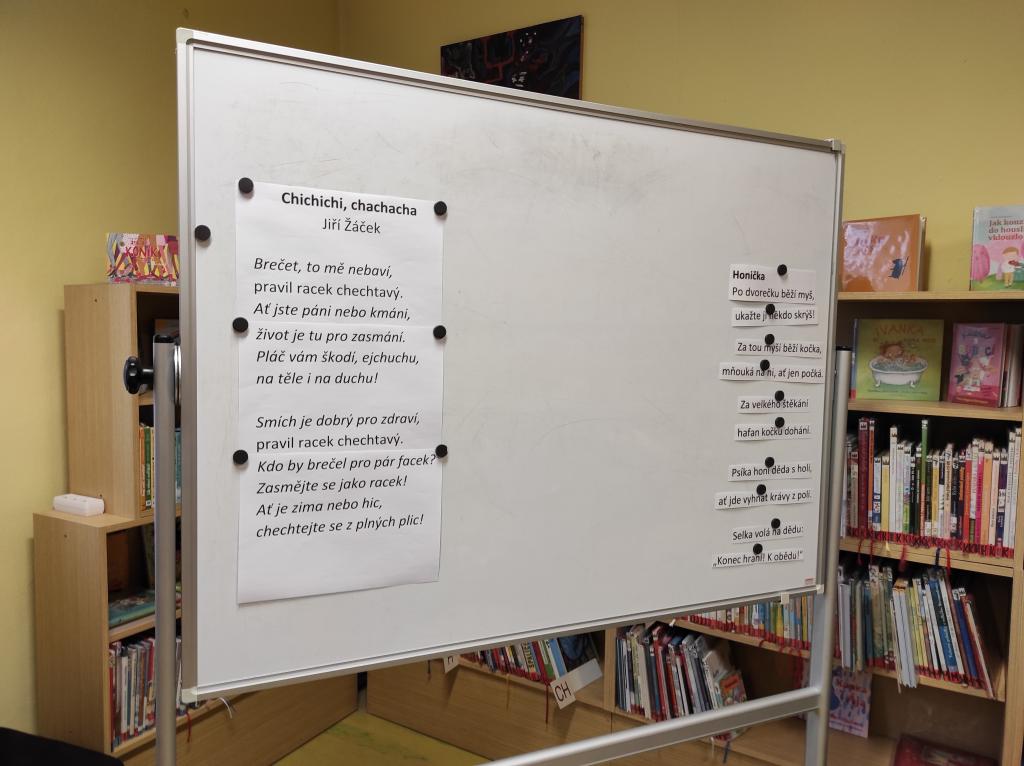 Chichichi, chachacha
Jiří Žáček
Brečet, to mě nebaví,
pravil racek chechtavý.
Ať jste páni nebo kmáni,
život je tu pro zasmání.
Pláč vám škodí, ejchuchu,
na těle i na duchu!
Smích je dobrý pro zdraví,
pravil racek chechtavý.
Kdo by brečel pro pár facek?
Zasmějte se jako racek!
Ať je zima nebo hic,
chechtejte se z plných plic!
Honička
Po dvorečku běží myš,
ukažte jí někdo skrýš!
Za tou myší běží kočka,
mňouká na ni, ať jen počká.
Za velkého štěkání
hafan kočku dohání.
Psíka honí děda s holí,
ať jde vyhnat krávy z polí.
Selka volá na dědu:
„Konec hraní! K obědu!"
KONÍKŮ
Jak kouz
do housl
vklouzlo
IVANKA
CH